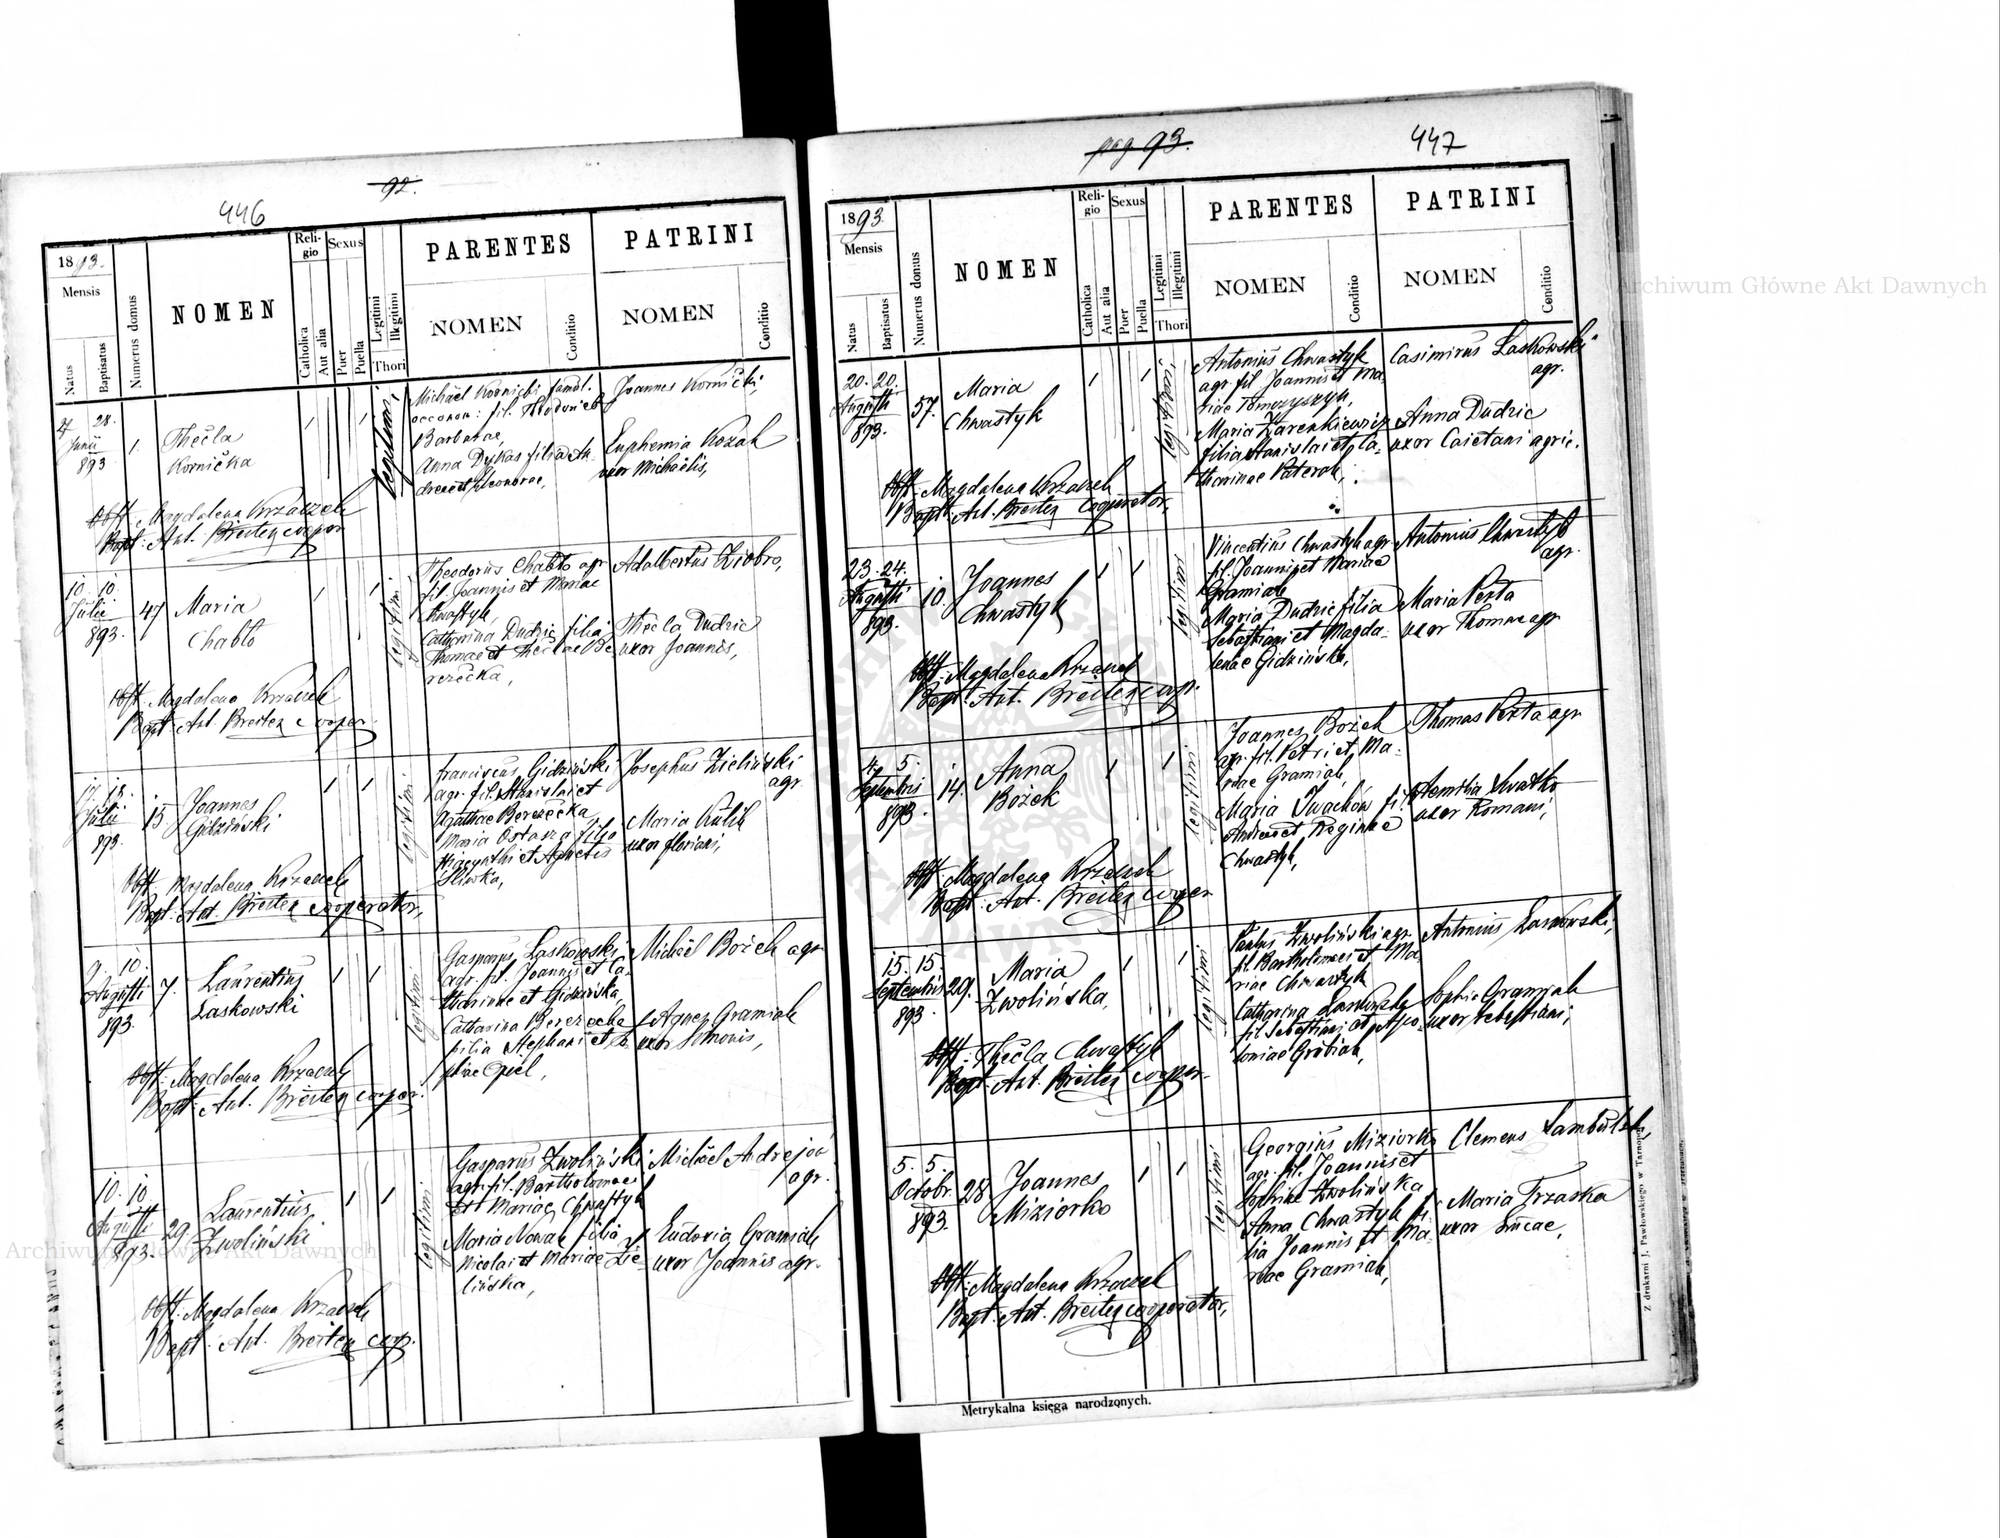 92.
446
1893.
Mensis
Natus
Baptisatus
Numerus domus
NOMEN
Religio
Catholica
Aut alia
Sexus
Puer
Puella
Legitimi
Illegitimi
Thori
PARENTES
NOMEN
Conditio
PATRINI
NOMEN
Conditio
4. 28.
Junii
893.
1.
Thecla
Kornička
legitimi
Michaël Kornicki famul.
occonom: fil. Theodori et
Barbarae,
Anna Dykas filia An-
dreae et Eleonorae,
Joannes Kornicki,
Euphemia Kozak
uxor Michaëlis,
Obst. Magdalena Krzaczek
Bapt. Ant. Breiter cooper.
10. 10.
Julii
893.
47
Maria
Chabło
legitimi
Theodorus Chabło agr.
fil. Joannis et Mariae
Chwastyk,
Catharina Dudzic filia
Thomae et Theclae Be-
rezecka,
Adalbertus Ziobro,
Thecla Dudzic
uxor Joannis,
Obst. Magdalena Krzaczek
Bapt. Ant. Breiter cooper.
17. 18.
Julii
893.
15
Joannes
Gidziński
legitimi
Franciscus Gidziński
agr. fil. Stanislai et
Agathae Berezecka,
Maria Ostasz filia
Hiacynthi et Agnetis
Śliwka,
Josephus Zieliński
agr.
Maria Kulik
uxor Floriani,
Obst. Magdalena Krzaczek
Bapt. Ant. Breiter cooperator,
9. 10.
Augusti
893.
7.
Laurentius
Laskowski
legitimi
Gasparus Laskowski
agr. fil. Joannis et Ca-
tharinae et Gidzińska,
Catharina Berezecka
filia Stephani et So-
phiae Opiel,
Michaël Bożek agr
Agnes Gramiak
uxor Simonis,
Obst. Magdalena Krzaczek
Bapt. Ant. Breiter cooper.
10. 10.
Augusti
893.
29.
Laurentius
Zwoliński
legitimi
Gasparus Zwoliński
agr. fil. Bartholomaei
et Mariae Chwastyk
Maria Nowak filia
Nicolai et Mariae Zie-
lińska,
Michaël Andrejów
agr.
Eudoxia Gramiak
uxor Joannis agr.
Obst. Magdalena Krzaczek
Bapt. Ant. Breiter coop.
pag 93.
447
1893
Mensis
Natus
Baptisatus
Numerus domus
NOMEN
Religio
Catholica
Aut alia
Sexus
Puer
Puella
Legitimi
Illegitimi
Thori
PARENTES
NOMEN
Conditio
PATRINI
NOMEN
Conditio
20. 20.
Augusti
893.
57.
Maria
Chwastyk
legitimi
Antonius Chwastyk
agr. fil. Joannis et Ma-
riae Tomczyszyn,
Maria Zarenkiewicz
filia Stanislai et Ca-
tharinae Paterak,
Casimirus Laskowski
agr.
Anna Dudzic
uxor Caietani agric.
Obst. Magdalena Krzaczek
Bapt. Ant. Breiter cooperator,
23. 24.
Augusti
893.
10.
Joannes
Chwastyk
legitimi
Vincentius Chwastyk agr.
fil. Joannis et Mariae
Gramiak
Maria Dudzic filia
Sebastiani et Magda-
lenae Gidzińska,
Antonius Chwastyk
agr.
Maria Perta
uxor Thomae agr
Obst. Magdalena Krzaczek
Bapt. Ant. Breiter cooper.
4. 5.
Septembris
893.
14.
Anna
Bożek
legitimi
Joannes Bożek
agr. fil. Petri et Ma-
riae Gramiak,
Maria Iwachów fil.
Andreae et Reginae
Chwastyk,
Thomas Perta agr
uxor Romani,
Obst. Magdalena Krzaczek
Bapt. Ant. Breiter cooper
15. 15.
Septembris
893.
29.
Maria
Zwolińska,
legitimi
Paulus Zwoliński agr.
fil. Bartholomaei et Ma-
riae Chwastyk
Catharina Laskowska
fil. Sebastiani et Apo-
loniae Grabiak,
Antonius Laskowski,
Sophia Gramiak
uxor Sebastiani,
Obst. Thecla Chwastyk
Bapt. Ant. Breiter cooper.
5. 5.
Octobr.
893.
28.
Joannes
Miziorko
legitimi
Georgius Miziorko
agr. fil. Joannis et
Sophiae Zwolińska
Anna Chwastyk fi-
lia Joannis et Ma-
riae Gramiak,
Clemens Lambulski,
Maria Trzaska
uxor Lucae,
Obst. Magdalena Krzaczek
Bapt. Ant. Breiter cooperator,
Metrykalna księga narodzonych.
Z drukarni J. Pawłowskiego w Tarnopolu
Archiwum Główne Akt Dawnych
Archiwum Główne Akt Dawnych